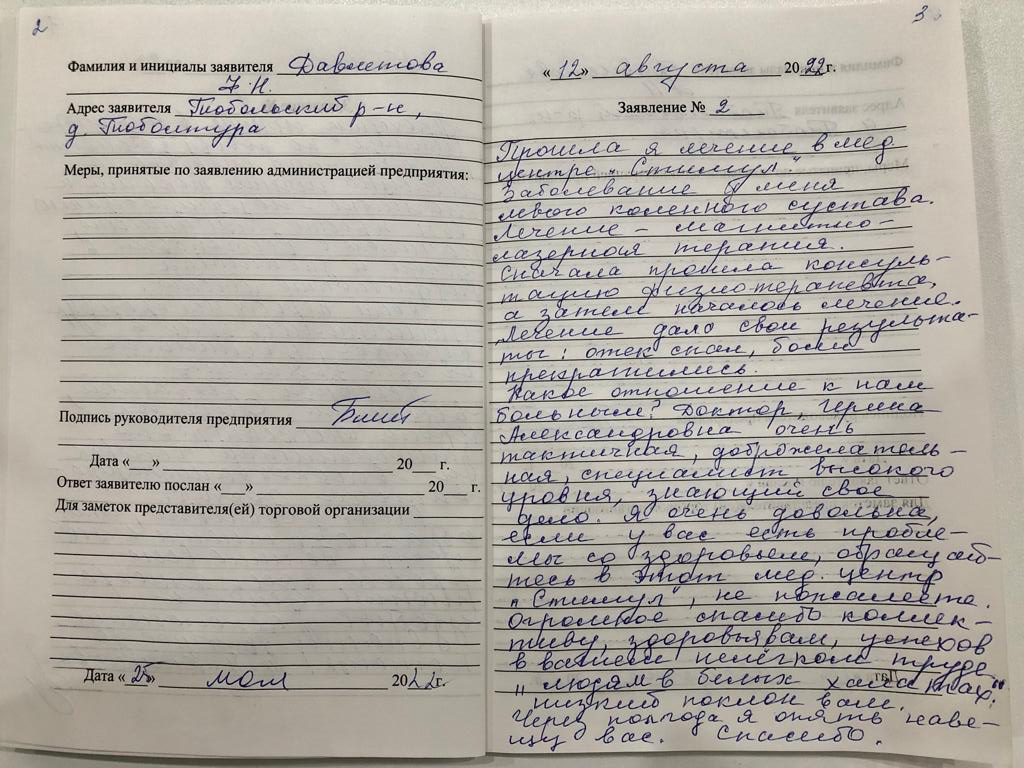 2
Фамилия и инициалы заявителя Давлетова
Адрес заявителя Тобольский р-н,
д. Тоболтура
Меры, принятые по заявлению администрацией предприятия:
Подпись руководителя предприятия
Дата «___» 20___ г.
Ответ заявителю послан «___» 20___ г.
Для заметок представителя(ей) торговой организации
Дата « 25 » мая 2022 г.
3
« 12 » августа 2022 г.
Заявление № 2
Прошла я лечение в мед
центре „Стимул".
Заболевание у меня
левого коленного сустава.
Лечение – магнитно-
лазерная терапия.
Сначала прошла консуль-
тацию физиотерапевта,
а затем началось лечение.
Лечение дало свои результа-
ты: отек спал, боли
прекратились.
Какое отношение к нам
больным? Доктор,
Александровна очень
тактичная, доброжелатель-
ная, специалист высокого
уровня, знающий свое
дело. Я очень довольна,
если у вас есть пробле-
мы со здоровьем, обращай-
тесь в этот мед. центр
„Стимул", не пожалеете.
Огромное спасибо коллек-
тиву, здоровья вам, успехов
в вашем нелёгком труде
„людям в белых халатах"
низкий поклон вам.
Через полгода я опять наве-
щу вас. Спасибо.